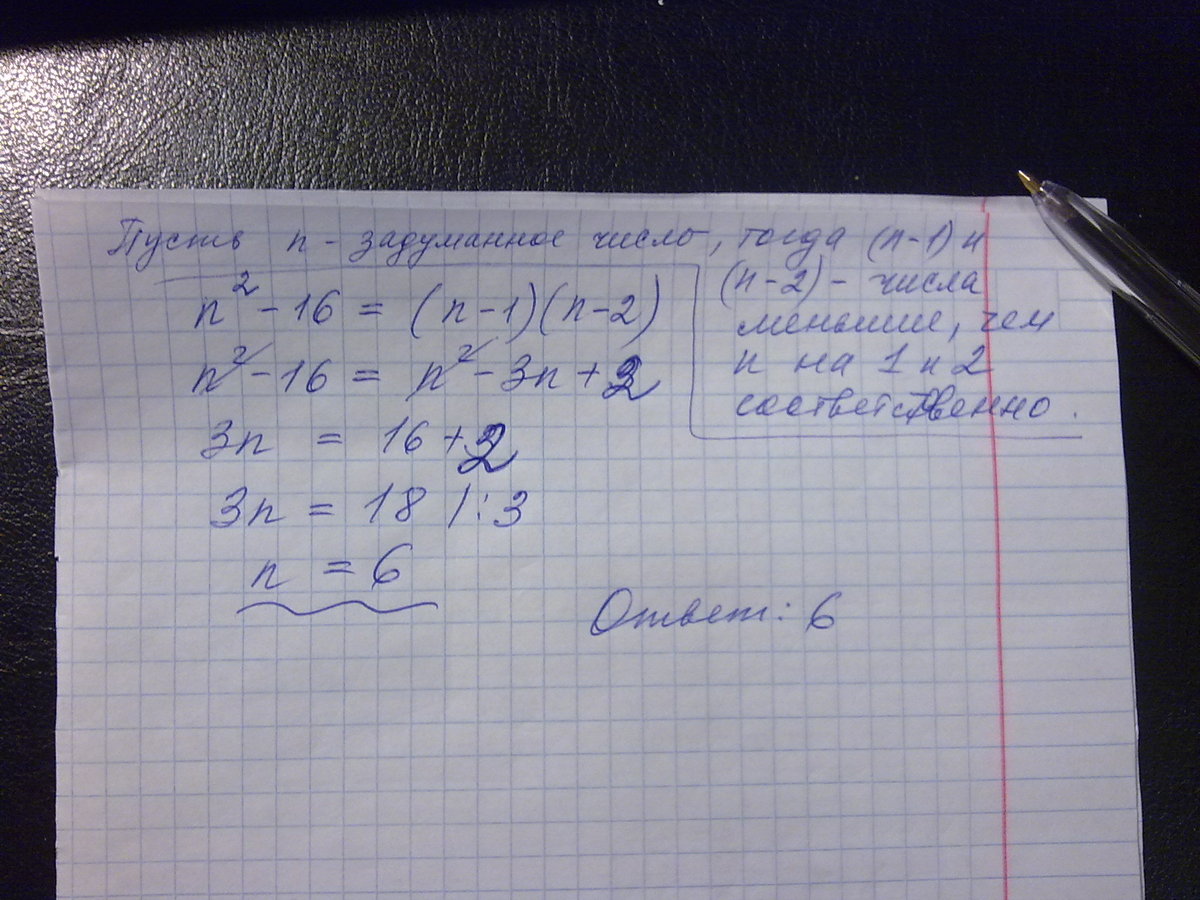 Пусть n - задуманное число, тогда (n-1) и
(n-2) - числа
меньшие, чем
n на 1 и 2
соответственно.
n² - 16 = (n-1)(n-2)
n² - 16 = n² - 3n + 2
3n = 16 + 2
3n = 18 | : 3
n = 6
Ответ: 6